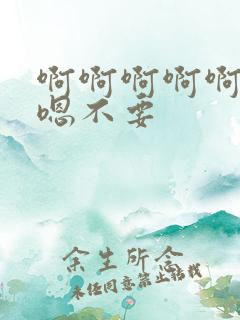 啊啊啊啊啊
嗯不要
余生所念
未经同意禁止转载